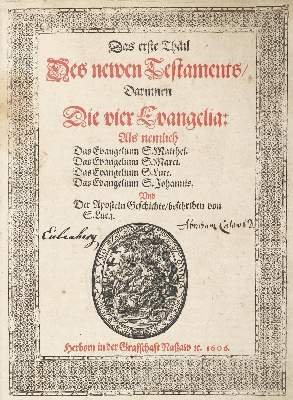 Das erste Theil
Des newen Testaments/
Darinnen
Die vier Evangelia:
Als nemlich
Das Evangelium S. Matthei.
Das Evangelium S. Marci.
Das Evangelium S. Luce.
Das Evangelium S. Johannis.
Und
Der Aposteln Geschichte/beschriben von
S. Luca.
Abraham
Herborn in der Graffschafft Naßaw ꝛc. 1606.